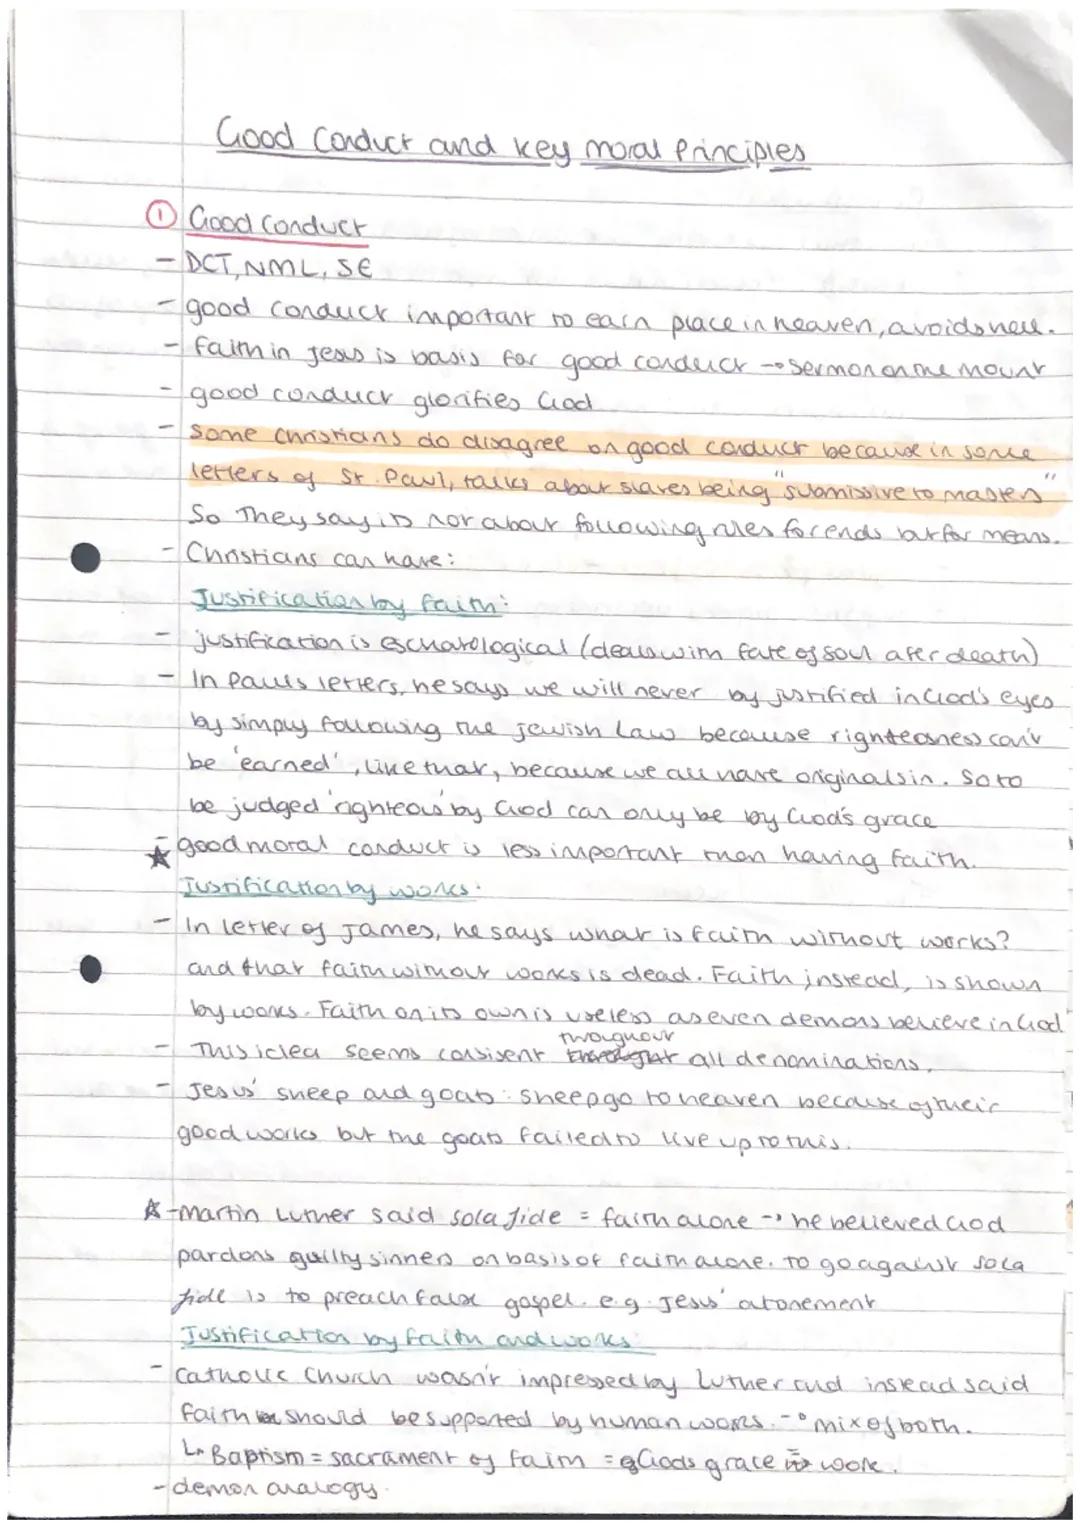 Good Conduct and key moral Principles
① Good Conduct
- DCT, NML, SE
- good conduct important to earn place in heaven, avoids hell.
- faith in Jesus is basis for good conduct → Sermon on the Mount
- good conduct glorifies God
- Some Christians do disagree on good conduct because in some
letters of St. Paul, talks about slaves being "submissive to masters"
So They say its not about following rules for ends but for means.
- Christians can have:
Justification by faith:
- justification is eschatological (deals with fate of soul after death)
- In Pauls letters, he says we will never by justified in God's eyes
by simply following the jewish Law because righteosness can't
be 'earned', like that, because we all have original sin. So to
be judged 'righteous' by God can only be by God's grace
★ - good moral conduct is less important than having faith.
Justification by works:
- In letter of James, he says what is faith without works?
and that faith without works is dead. Faith instead, is shown
by works. Faith on its own is useless as even demons believe in God
throughout
- This idea seems consisent all denominations.
- Jesus' sheep and goats: sheep go to heaven because of their
good works but the goats failed to live up to this.
★ - martin Luther said sola fide = faith alone → he believed God
pardons guilty sinners on basis of faith alone. To go against sola
fide is to preach false gospel. e.g. Jesus' atonement
Justification by faith and works:
- Catholic Church wasn't impressed by Luther and instead said
faith should be supported by human works. → mix of both.
↳ Baptism = sacrament of faith = Gods grace work.
- demon analogy.